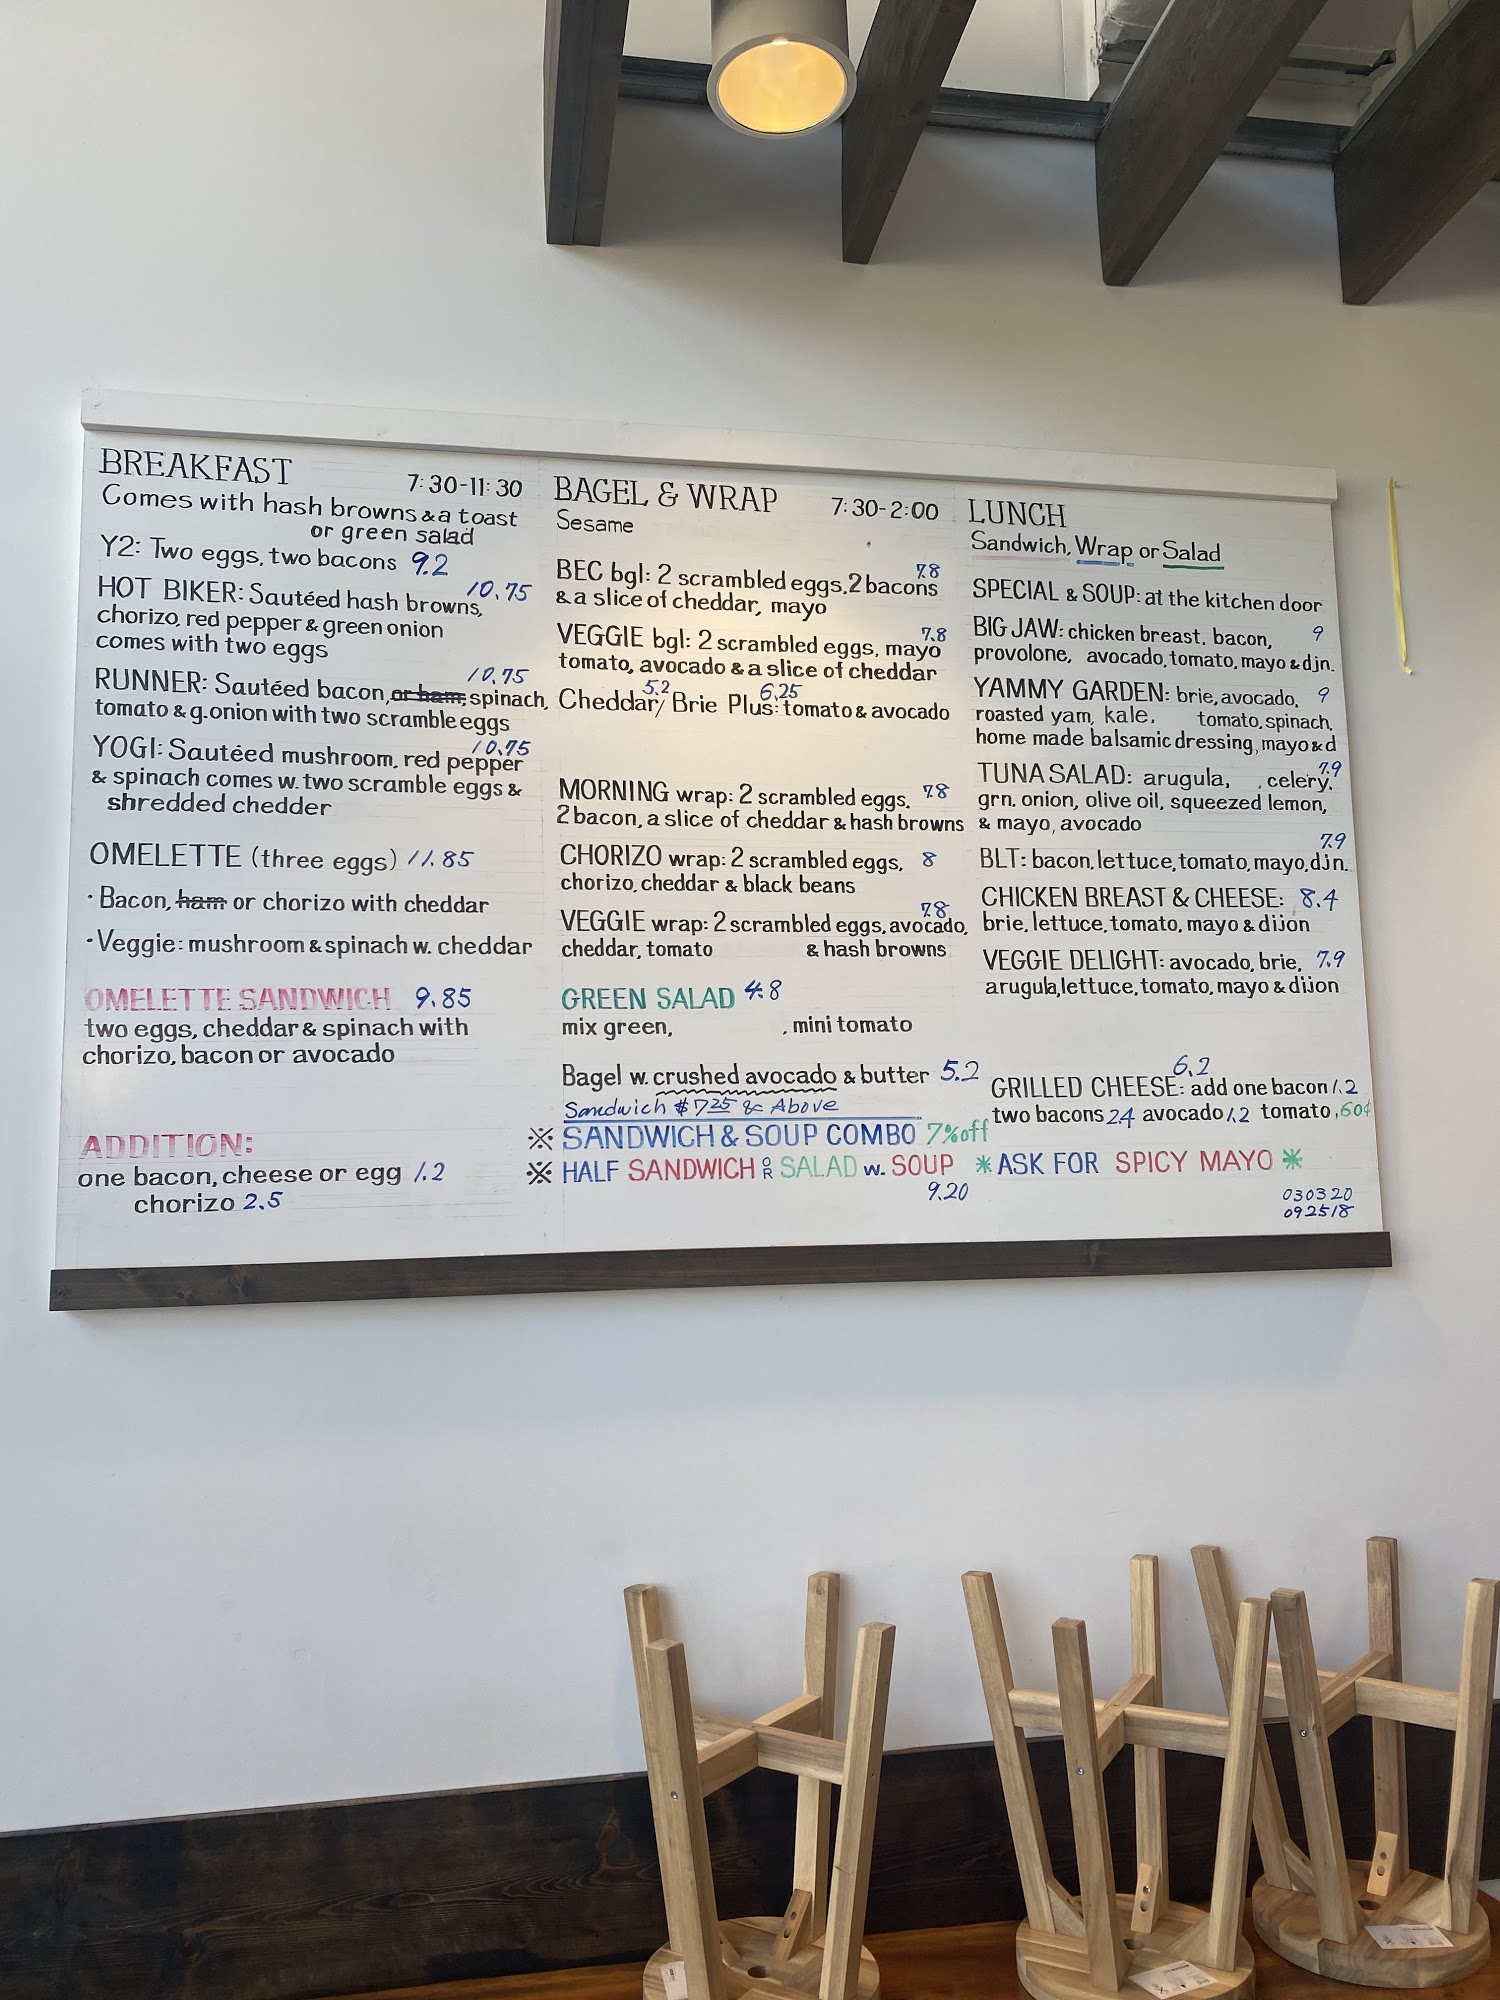 BREAKFAST 7:30-11:30
Comes with hash browns & a toast
or green salad
Y2: Two eggs, two bacons 9.2
HOT BIKER: Sautéed hash browns, 10.75
chorizo, red pepper & green onion
comes with two eggs
RUNNER: Sautéed bacon, or ham, spinach, 10.75
tomato & g.onion with two scramble eggs
YOGI: Sautéed mushroom, red pepper 10.75
& spinach comes w. two scramble eggs &
shredded chedder
OMELETTE (three eggs) 11.85
· Bacon, ham or chorizo with cheddar
· Veggie: mushroom & spinach w. cheddar
OMELETTE SANDWICH 9.85
two eggs, cheddar & spinach with
chorizo, bacon or avocado
ADDITION:
one bacon, cheese or egg 1.2
chorizo 2.5
BAGEL & WRAP 7:30-2:00
Sesame
BEC bgl: 2 scrambled eggs, 2 bacons 7.8
& a slice of cheddar, mayo
VEGGIE bgl: 2 scrambled eggs, mayo 7.8
tomato, avocado & a slice of cheddar
Cheddar 5.2 / Brie Plus: 6.25 tomato & avocado
MORNING wrap: 2 scrambled eggs, 7.8
2 bacon, a slice of cheddar & hash browns
CHORIZO wrap: 2 scrambled eggs, 8
chorizo, cheddar & black beans
VEGGIE wrap: 2 scrambled eggs, avocado, 7.8
cheddar, tomato & hash browns
GREEN SALAD 4.8
mix green, , mini tomato
Bagel w. crushed avocado & butter 5.2
Sandwich $7.25 & Above
※ SANDWICH & SOUP COMBO 7% off
※ HALF SANDWICH OR SALAD w. SOUP
9.20
LUNCH
Sandwich, Wrap or Salad
SPECIAL & SOUP: at the kitchen door
BIG JAW: chicken breast, bacon, 9
provolone, avocado, tomato, mayo & djn.
YAMMY GARDEN: brie, avocado, 9
roasted yam, kale, tomato, spinach,
home made balsamic dressing, mayo & d
TUNA SALAD: arugula, , celery, 7.9
grn. onion, olive oil, squeezed lemon,
& mayo, avocado
BLT: bacon, lettuce, tomato, mayo, djn. 7.9
CHICKEN BREAST & CHEESE: 8.4
brie, lettuce, tomato, mayo & dijon
VEGGIE DELIGHT: avocado, brie, 7.9
arugula, lettuce, tomato, mayo & dijon
GRILLED CHEESE: 6.2 add one bacon 1.2
two bacons 2.4 avocado 1.2 tomato, 60¢
* ASK FOR SPICY MAYO *
030320
092518